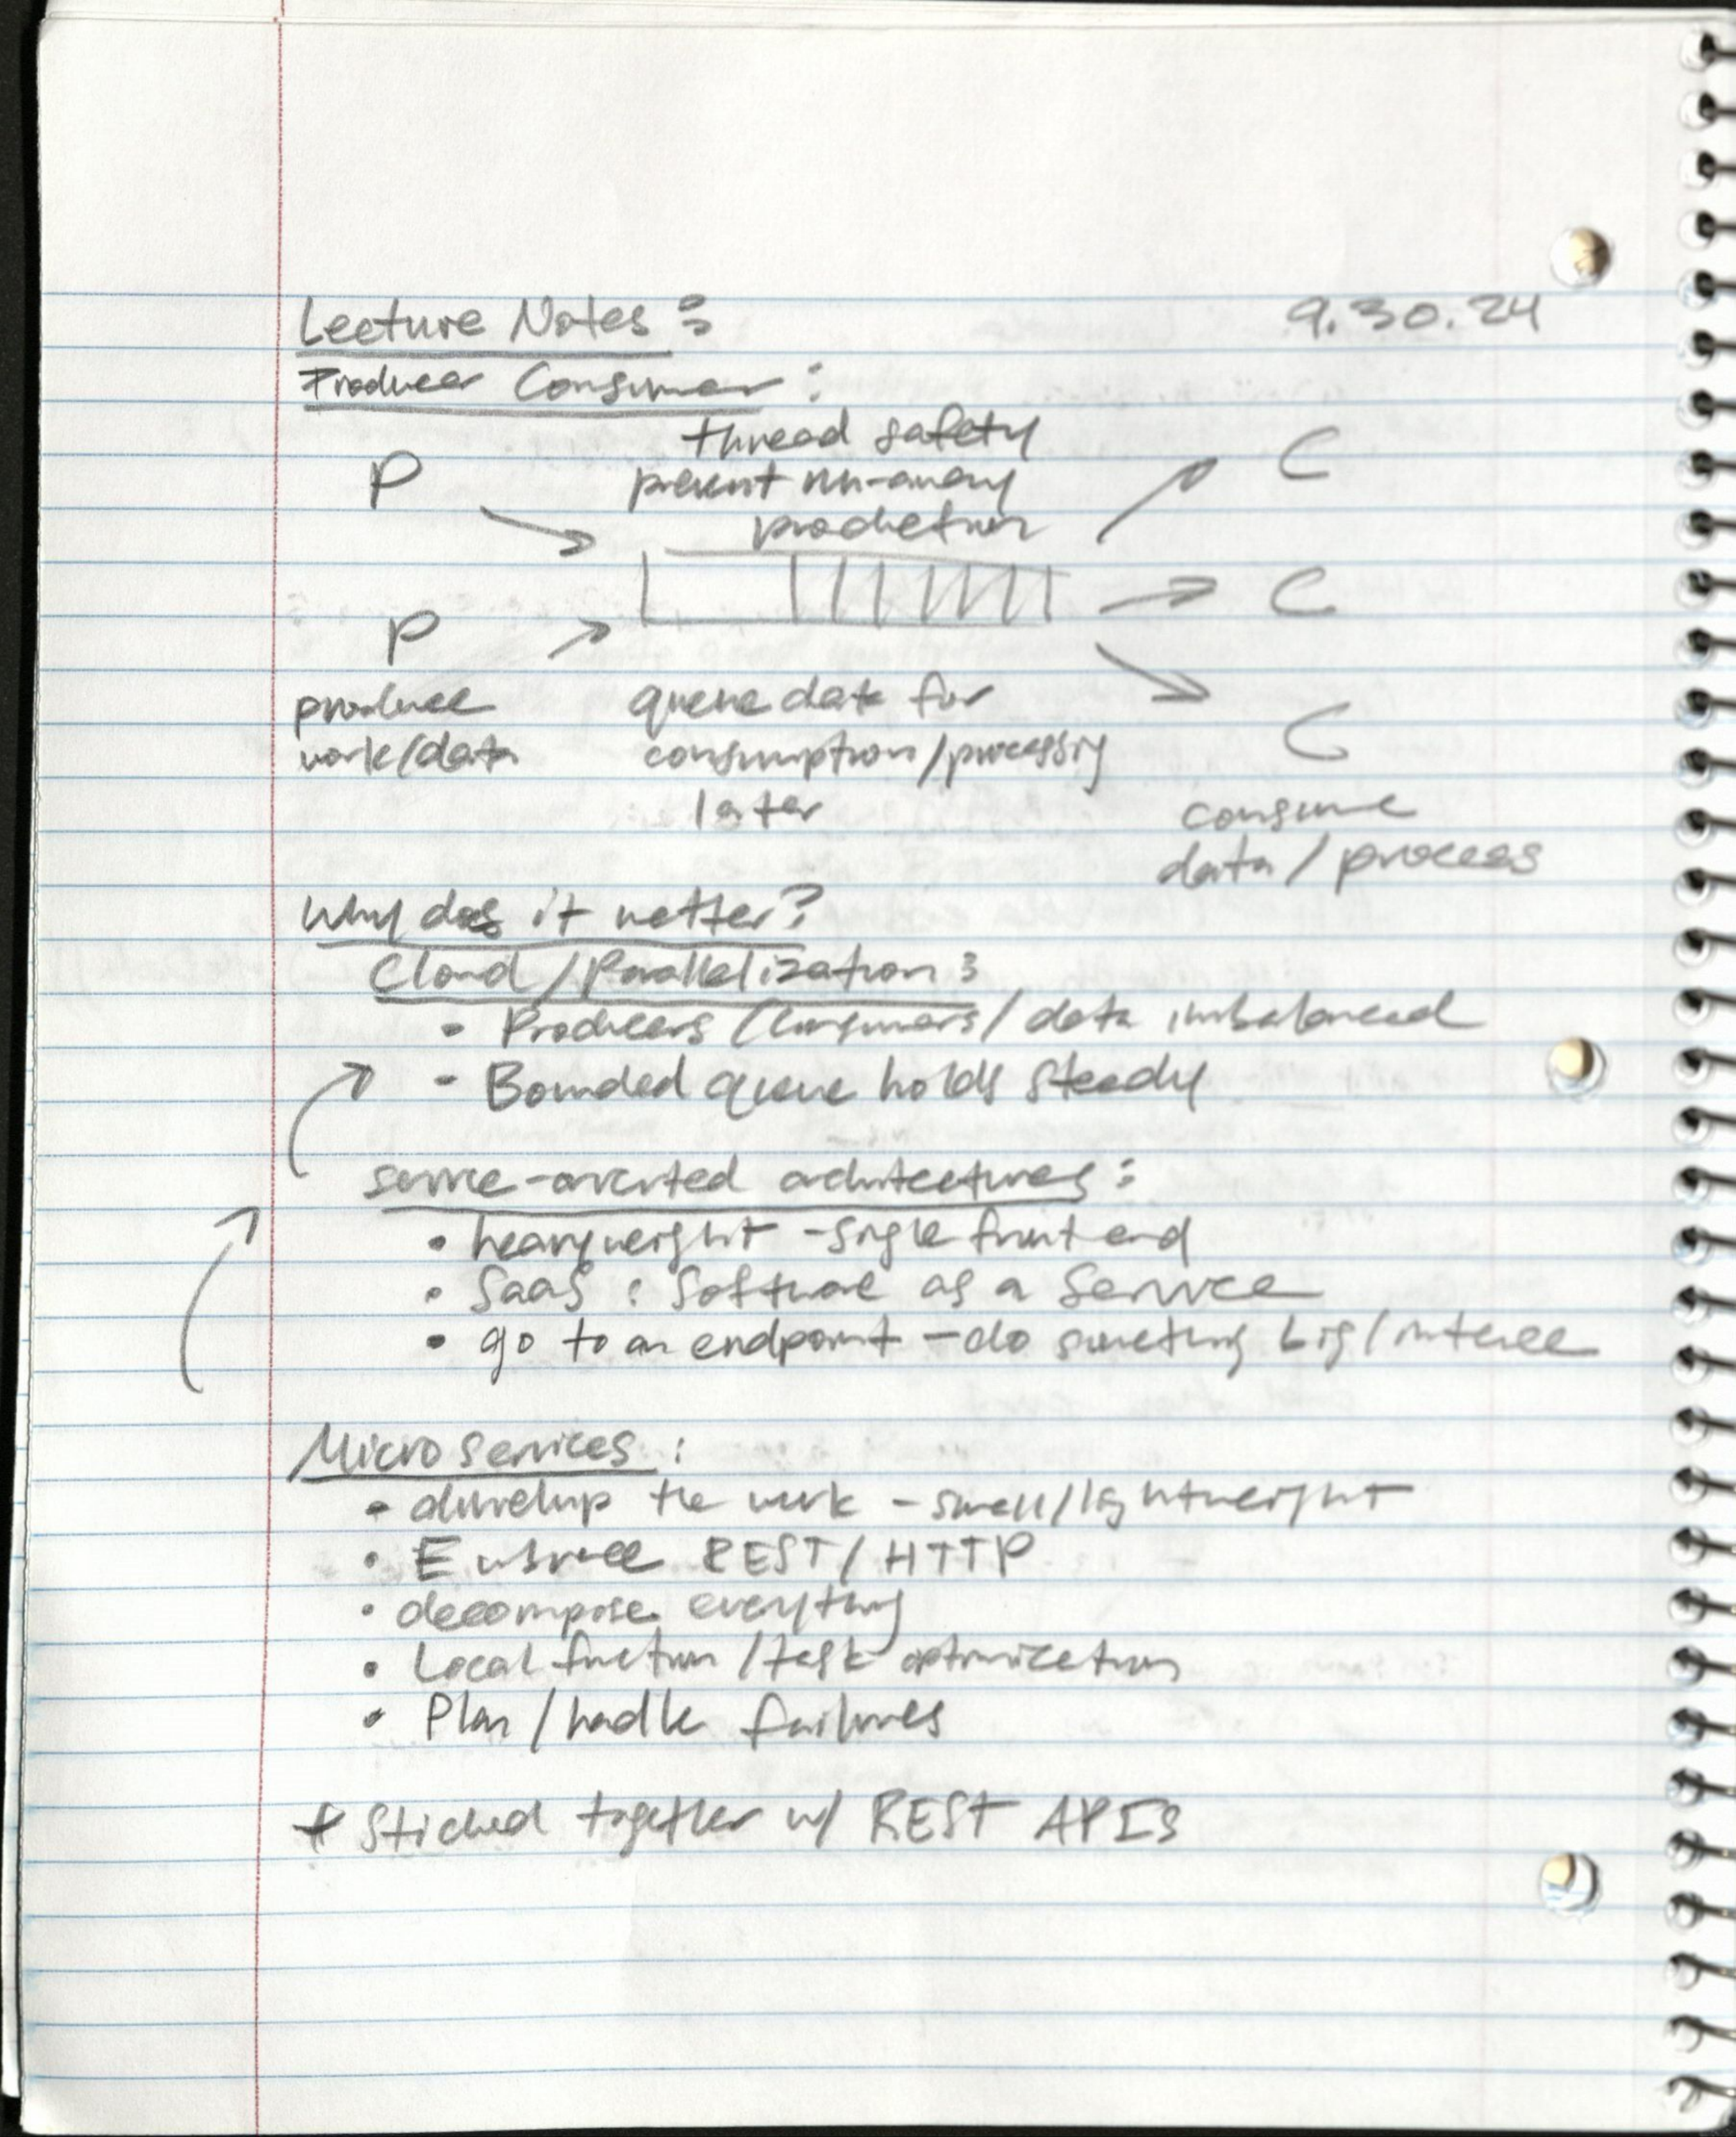 Lecture Notes :
9.30.24
Producer Consumer :
thread safety
prevent run-away
production
P
C
C
P
produce
work/data
queue data for
consumption/processing
later
C
consume
data / process
Why does it matter?
Cloud / Parallelization :
• Producers / Consumers / data imbalanced
- Bounded queue holds steady
service-oriented architectures :
• heavyweight - single front end
• SaaS : Software as a Service
• go to an endpoint - do something big /
Microservices :
• the work - small / lightweight
• Embrace REST / HTTP
• decompose everything
• Local function / task optimization
• Plan / handle failures
* Stiched together w/ REST APIs